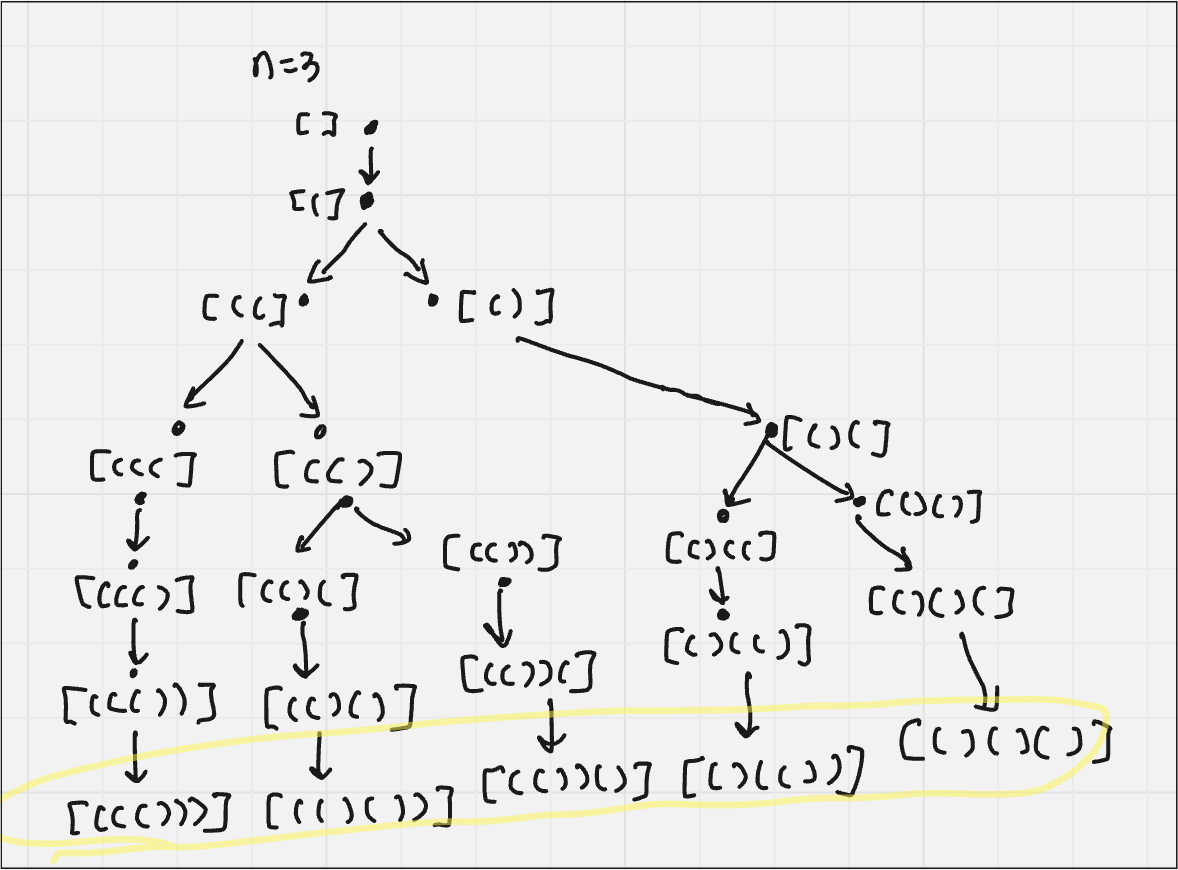 n=3
[ ]
[(]
[((]
[()]
[()(]
[(((]
[(()]
[()()]
[(())]
[()((]
[((()]
[(()(]
[()()(]
[()(()]
[(())(]
[((())]
[(()()]
[()()()]
[(())()]
[()(())]
[((()))]
[(()())]